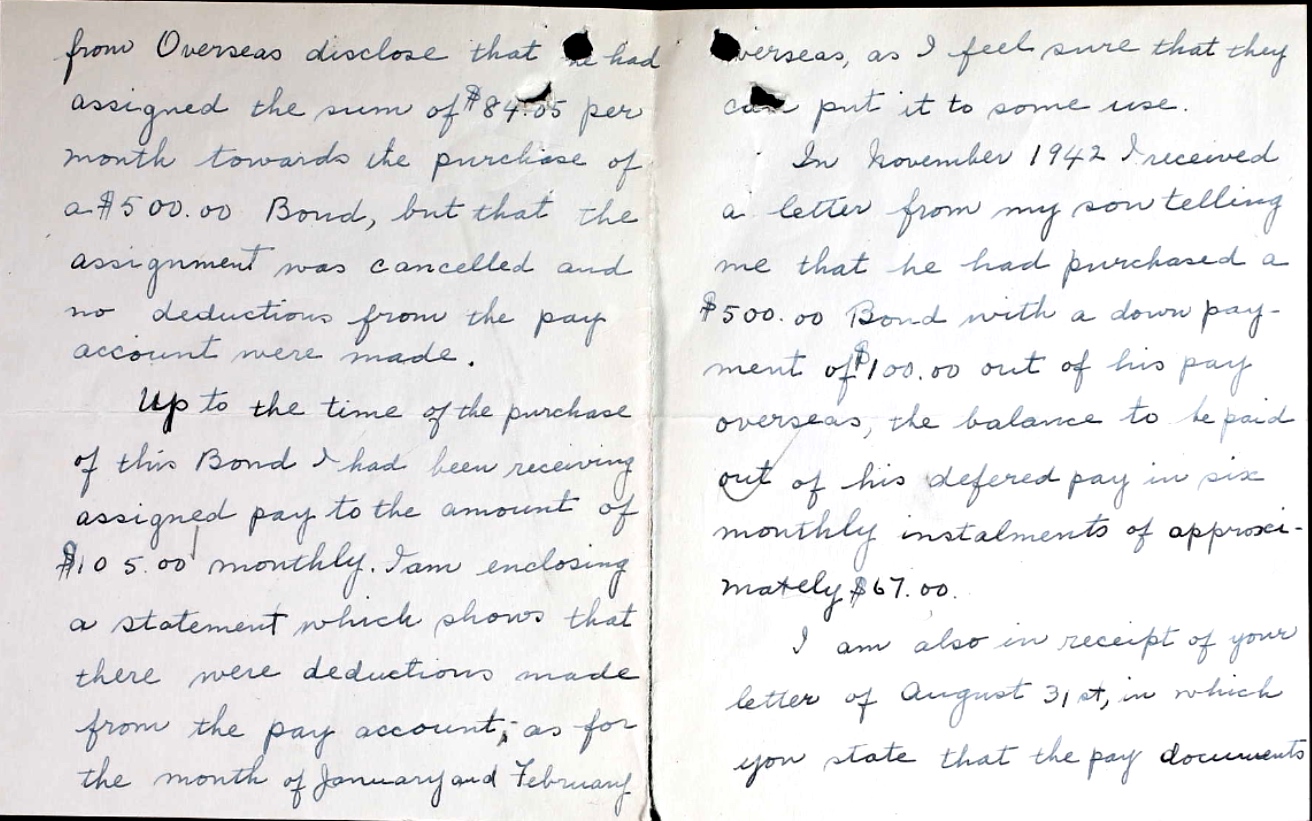 from Overseas disclose that he had
assigned the sum of $84.05 per
month towards the purchase of
a $500.00 Bond, but that the
assignment was cancelled and
no deductions from the pay
account were made.
Up to the time of the purchase
of this Bond I had been receiving
assigned pay to the amount of
$105.00 monthly. I am enclosing
a statement which shows that
there were deductions made
from the pay account, as for
the month of January and February
overseas, as I feel sure that they
can put it to some use.
In November 1942 I received
a letter from my son telling
me that he had purchased a
$500.00 Bond with a down pay-
ment of $100.00 out of his pay
overseas, the balance to be paid
out of his defered pay in six
monthly instalments of approxi-
mately $67.00.
I am also in receipt of your
letter of August 31st, in which
you state that the pay documents